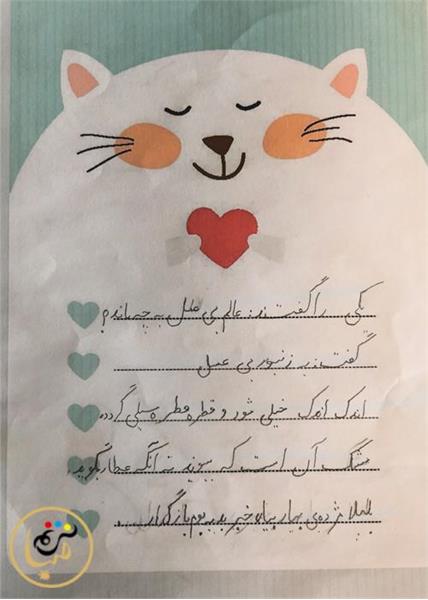 یکی را گفتند: عالم بی عمل به چه ماند؟
گفت: به زنبور بی عسل
اندک اندک خیلی شود و قطره قطره سیلی گردد.
مشک آن است که ببوید نه آنکه عطار بگوید.
بلبلا مژده‌ی بهار بیار خبر بد به بوم باز گذار